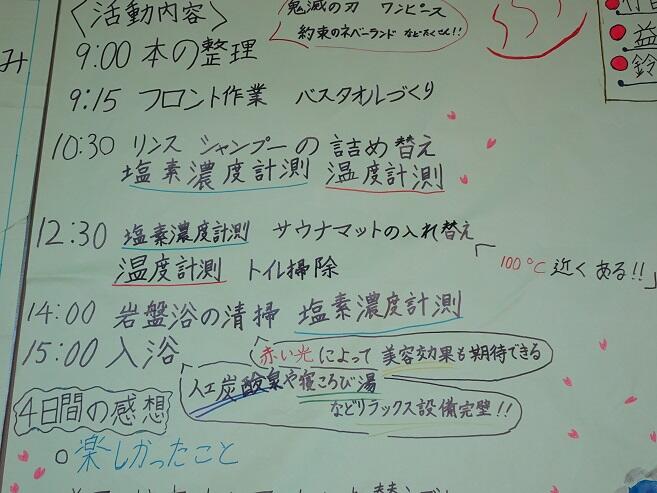 〈活動内容〉
鬼滅の刃 ワンピース
約束のネバーランド などたくさん!!
9:00 本の整理
9:15 フロント作業 バスタオルづくり
10:30 リンス シャンプーの詰め替え
塩素濃度計測 温度計測
12:30 塩素濃度計測 サウナマットの入れ替え
100℃近くある!!
温度計測 トイレ掃除
14:00 岩盤浴の清掃 塩素濃度計測
15:00 入浴
赤い光によって美容効果も期待できる
人工炭酸泉や寝ころび湯
などリラックス設備完璧!!
4日間の感想
○楽しかったこと
み
益
鈴